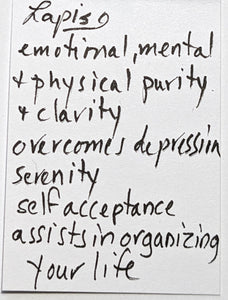 Lapis
emotional, mental
+ physical purity.
+ clarity
overcomes depression
serenity
self acceptance
assists in organizing
your life